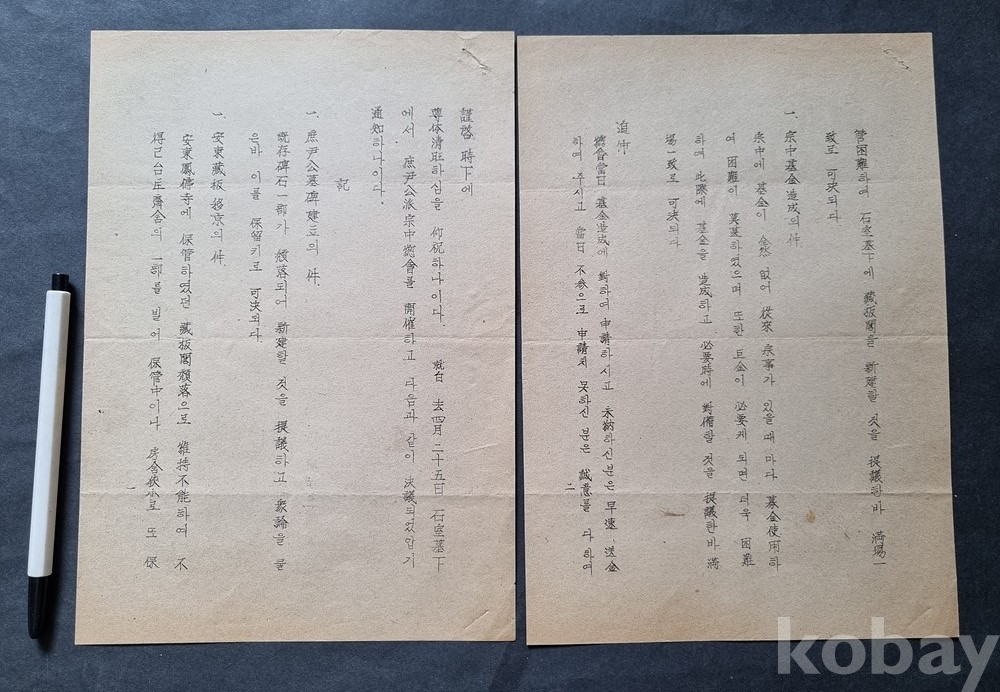 謹啓 時下에
尊体淸旺하심을 仰祝하나이다. 就白 去四月二十五日 石室墓下
에서 庶尹公派宗中總會를 開催하고 다음과 같이 決議되었압기
通知하나이다.
記
一. 庶尹公墓碑建立의 件.
旣存碑石一部가 頹落되어 新建할 것을 提議하고 衆論을 물
은바 이를 保留키로 可決되다.
一. 安東藏板移京의 件.
安東鳳佛寺에 保管하였던 藏板閣頹落으로 維持不能하여 不
得已台庄齊舍의 一部를 빌어 保管中이나 房舍狹小로 또 保
一
管困難하여 石室墓下에 藏板閣을 新建할 것을 提議한바 滿場一
致로 可決되다
一. 宗中基金造成의 件.
宗中에 基金이 全然 없어 從來 宗事가 있을때 마다 募金使用하
여 困難이 莫甚하였으며 또한 巨金이 必要케 되면 더욱 困難
하여 此際에 基金을 造成하고 必要時에 對備할 것을 提議한바 滿
場一致로 可決되다
追伸
總會當日 基金造成에 對하여 申請하시고 未納하신분은 早速 送金
하여 주시고 當日 不參으로 申請치 못하신 분은 誠意를 다하여
二
kobay